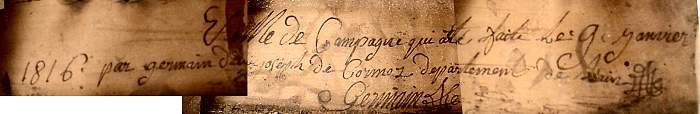 Vielle de Campagne qui a ete faite Le 9e janvier
1816. par germain de joseph de Cormoz departement de Lain
Germain